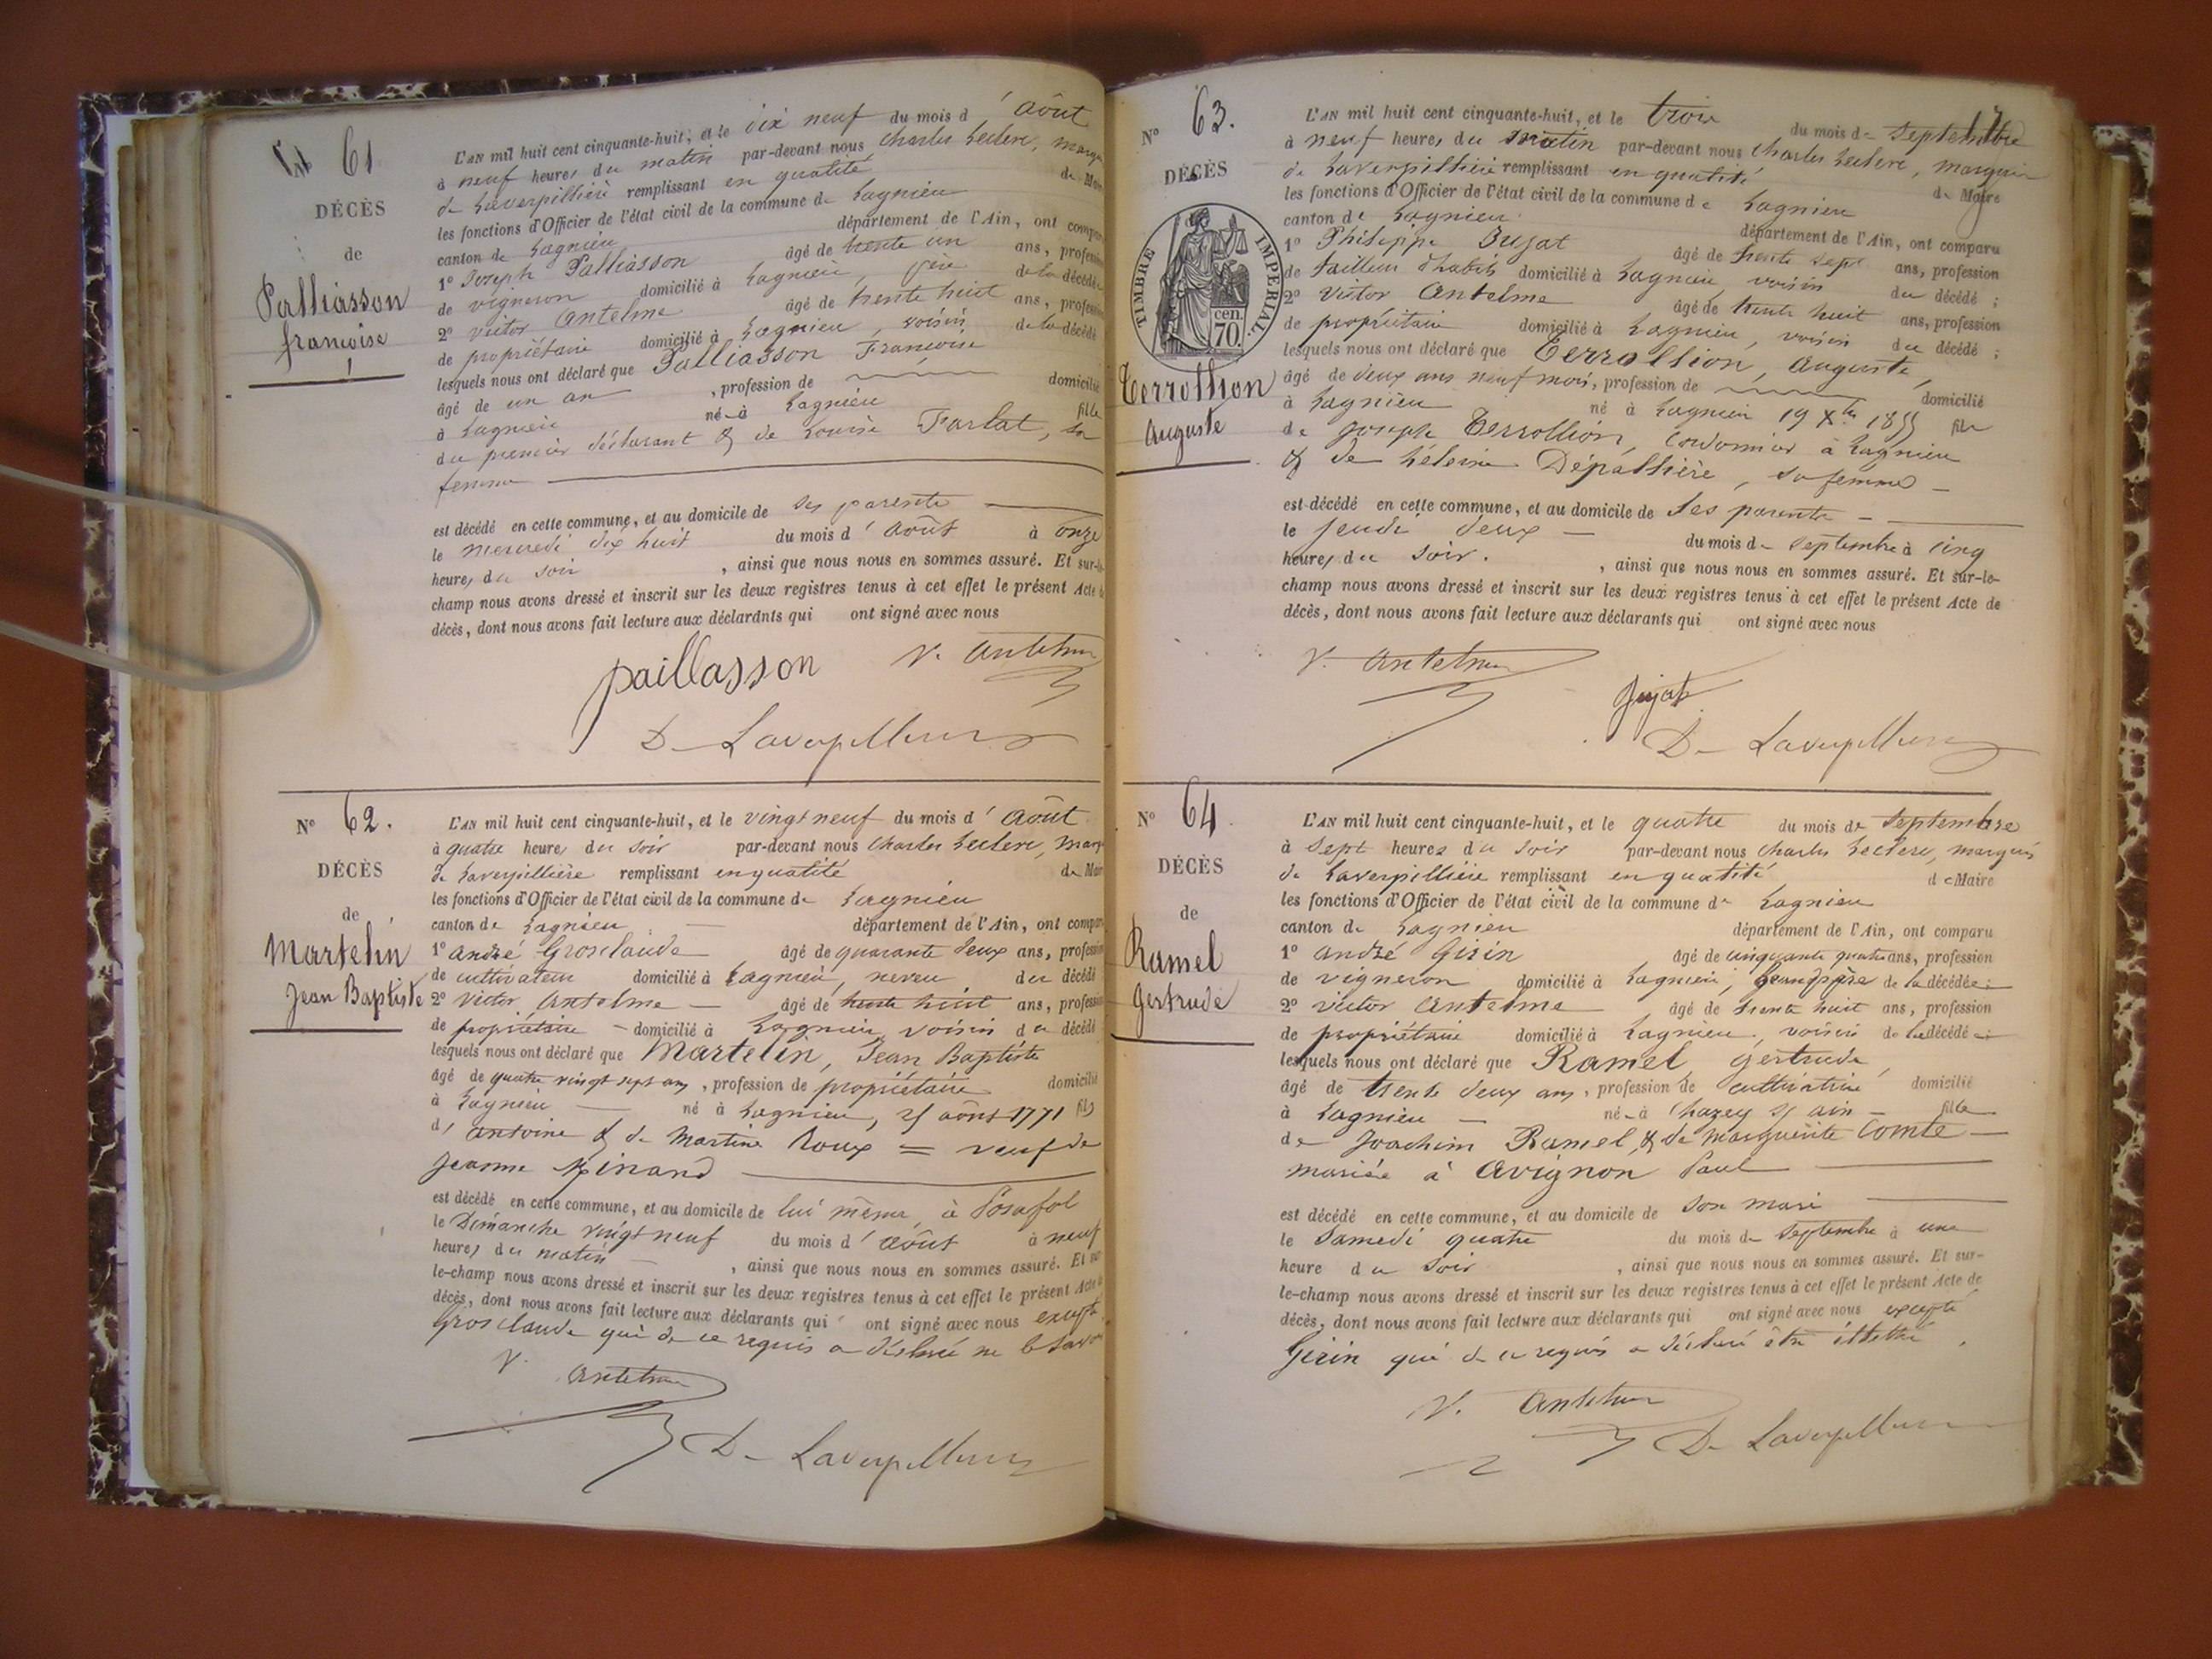 N° 61
DÉCÈS
de
Palliasson
françoise
L'AN mil huit cent cinquante-huit, et le dix neuf du mois d'Août
à neuf heures du matin par-devant nous Charles Leclerc, marquis
de Laverpillière remplissant en qualité de Maire
les fonctions d'Officier de l'état civil de la commune de Lagnieu
canton de Lagnieu département de l'Ain, ont comparu
1° Joseph Palliasson âgé de trente un ans, profession
de vigneron domicilié à Lagnieu, père de la décédée
2° Victor Antelme âgé de trente huit ans, profession
de propriétaire domicilié à Lagnieu, voisin de la décédé
lesquels nous ont déclaré que Palliasson Françoise
âgé de un an , profession de domicilié
à Lagnieu né à Lagnieu fille
du premier déclarant & de Louise Farlat, sa
femme
est décédé en cette commune, et au domicile de ses parents
le mercredi dix huit du mois d'août à onze
heures du soir , ainsi que nous nous en sommes assuré. Et sur-le-
champ nous avons dressé et inscrit sur les deux registres tenus à cet effet le présent Acte de
décès, dont nous avons fait lecture aux déclarants qui ont signé avec nous
paillasson V. Antelme
De Laverpillière
N° 62.
DÉCÈS
de
Martelin
Jean Baptiste
L'AN mil huit cent cinquante-huit, et le vingt neuf du mois d'Août
à quatre heures du soir par-devant nous Charles Leclerc, marquis
de Laverpillière remplissant en qualité de Maire
les fonctions d'Officier de l'état civil de la commune de Lagnieu
canton de Lagnieu département de l'Ain, ont comparu
1° André Grosclaude âgé de quarante deux ans, profession
de cultivateur domicilié à Lagnieu, neveu du décédé
2° Victor Antelme âgé de trente huit ans, profession
de propriétaire domicilié à Lagnieu, voisin du décédé
lesquels nous ont déclaré que Martelin, Jean Baptiste
âgé de quatre vingt sept ans, profession de propriétaire domicilié
à Lagnieu né à Lagnieu, 25 août 1771 fils
d'antoine & de Martine Roux = veuf de
Jeanne Minand
est décédé en cette commune, et au domicile de lui même, à Posafol
le Dimanche vingt neuf du mois d'août à neuf
heures du matin , ainsi que nous nous en sommes assuré. Et sur-
le-champ nous avons dressé et inscrit sur les deux registres tenus à cet effet le présent Acte de
décès, dont nous avons fait lecture aux déclarants qui ont signé avec nous excepté
Grosclaude qui de ce requis a déclaré ne le savoir
V. Antelme
De Laverpillière
17
N° 63.
DÉCÈS
TIMBRE IMPÉRIAL
cen. 70.
Terrollion
Auguste
L'AN mil huit cent cinquante-huit, et le trois du mois de Septembre
à neuf heures du matin par-devant nous Charles Leclerc, marquis
de Laverpillière remplissant en qualité de Maire
les fonctions d'Officier de l'état civil de la commune de Lagnieu
canton de Lagnieu département de l'Ain, ont comparu
1° Philippe Jujat âgé de trente sept ans, profession
de tailleur d'habits domicilié à Lagnieu, voisin du décédé ;
2° Victor Antelme âgé de trente huit ans, profession
de propriétaire domicilié à Lagnieu, voisin du décédé ;
lesquels nous ont déclaré que Terrollion, Auguste,
âgé de deux ans neuf mois, profession de domicilié
à Lagnieu né à Lagnieu 19 Xbre 1855 fils
de Joseph Terrollion, cordonnier à Lagnieu
& de héleine Dépallière, sa femme
est décédé en cette commune, et au domicile de ses parents
le jeudi deux du mois de Septembre à cinq
heures du soir. , ainsi que nous nous en sommes assuré. Et sur-le-
champ nous avons dressé et inscrit sur les deux registres tenus à cet effet le présent Acte de
décès, dont nous avons fait lecture aux déclarants qui ont signé avec nous
V. Antelme
Jujat
De Laverpillière
N° 64
DÉCÈS
de
Ramel
Gertrude
L'AN mil huit cent cinquante-huit, et le quatre du mois de Septembre
à sept heures du soir par-devant nous Charles Leclerc, marquis
de Laverpillière remplissant en qualité de Maire
les fonctions d'Officier de l'état civil de la commune de Lagnieu
canton de Lagnieu département de l'Ain, ont comparu
1° André Girin âgé de cinquante quatre ans, profession
de vigneron domicilié à Lagnieu, de la décédée ;
2° Victor Antelme âgé de trente huit ans, profession
de propriétaire domicilié à Lagnieu, voisin de la décédé ;
lesquels nous ont déclaré que Ramel Gertrude,
âgé de trente deux ans, profession de cultivatrice domicilié
à Lagnieu né à Chazey s/ ain fille
de Joachim Ramel, & de Marguerite Comte
mariée à Avignon Paul
est décédé en cette commune, et au domicile de son mari
le Samedi quatre du mois de Septembre à une
heure du soir , ainsi que nous nous en sommes assuré. Et sur-
le-champ nous avons dressé et inscrit sur les deux registres tenus à cet effet le présent Acte de
décès, dont nous avons fait lecture aux déclarants qui ont signé avec nous excepté
Girin qui de ce requis a déclaré être illettré.
V. Antelme
De Laverpillière